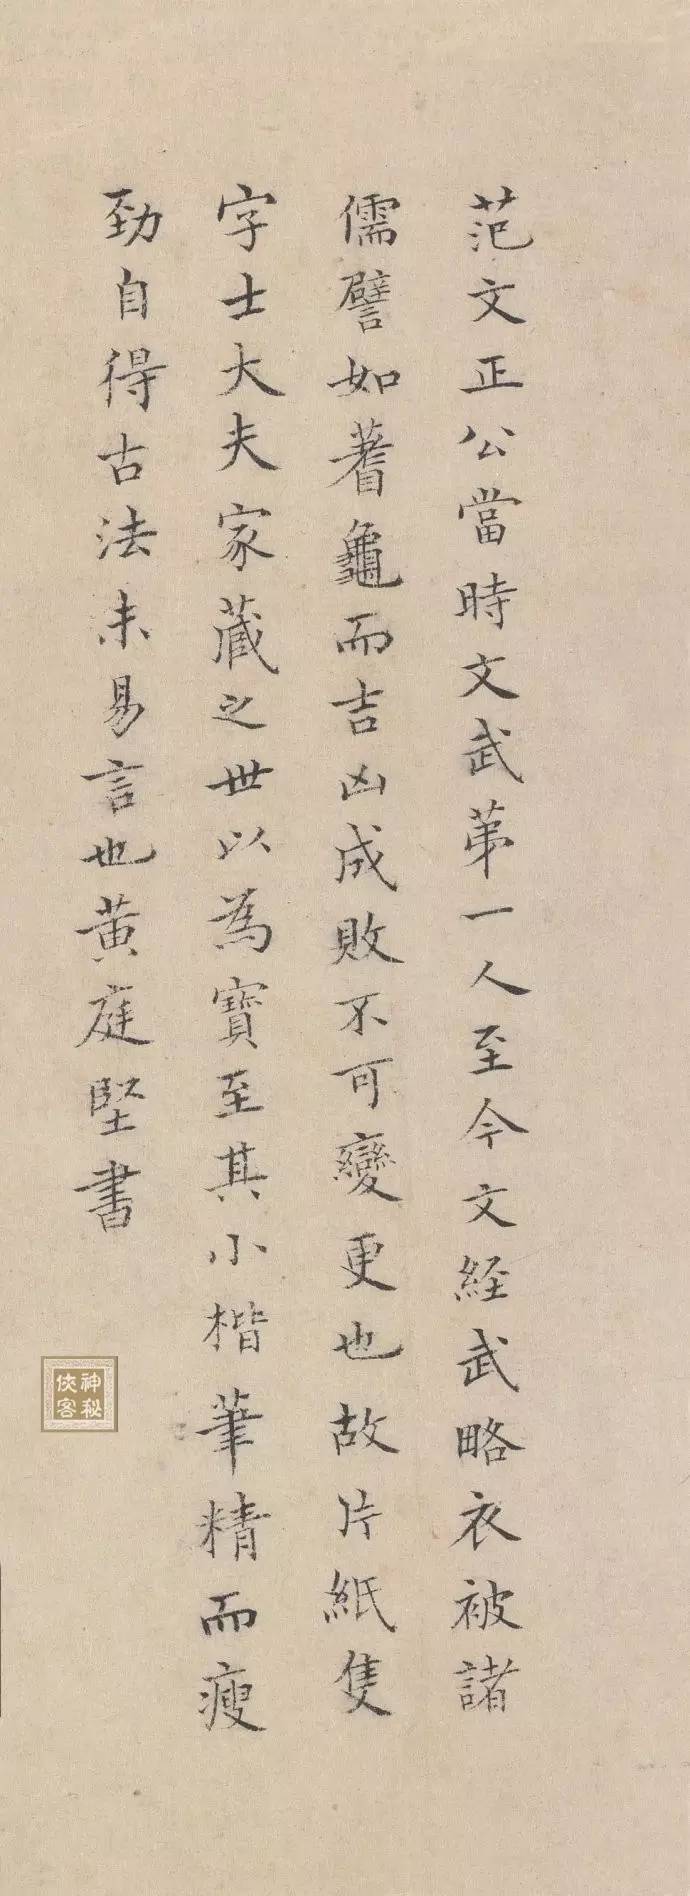 范文正公當時文武苐一人至今文経武略衣被諸
儒譬如蓍龜而吉凶成敗不可變更也故片紙隻
字士大夫家蔵之世以為寳至其小楷筆精而瘦
勁自得古法未易言也黄庭堅書
神秘
俠客